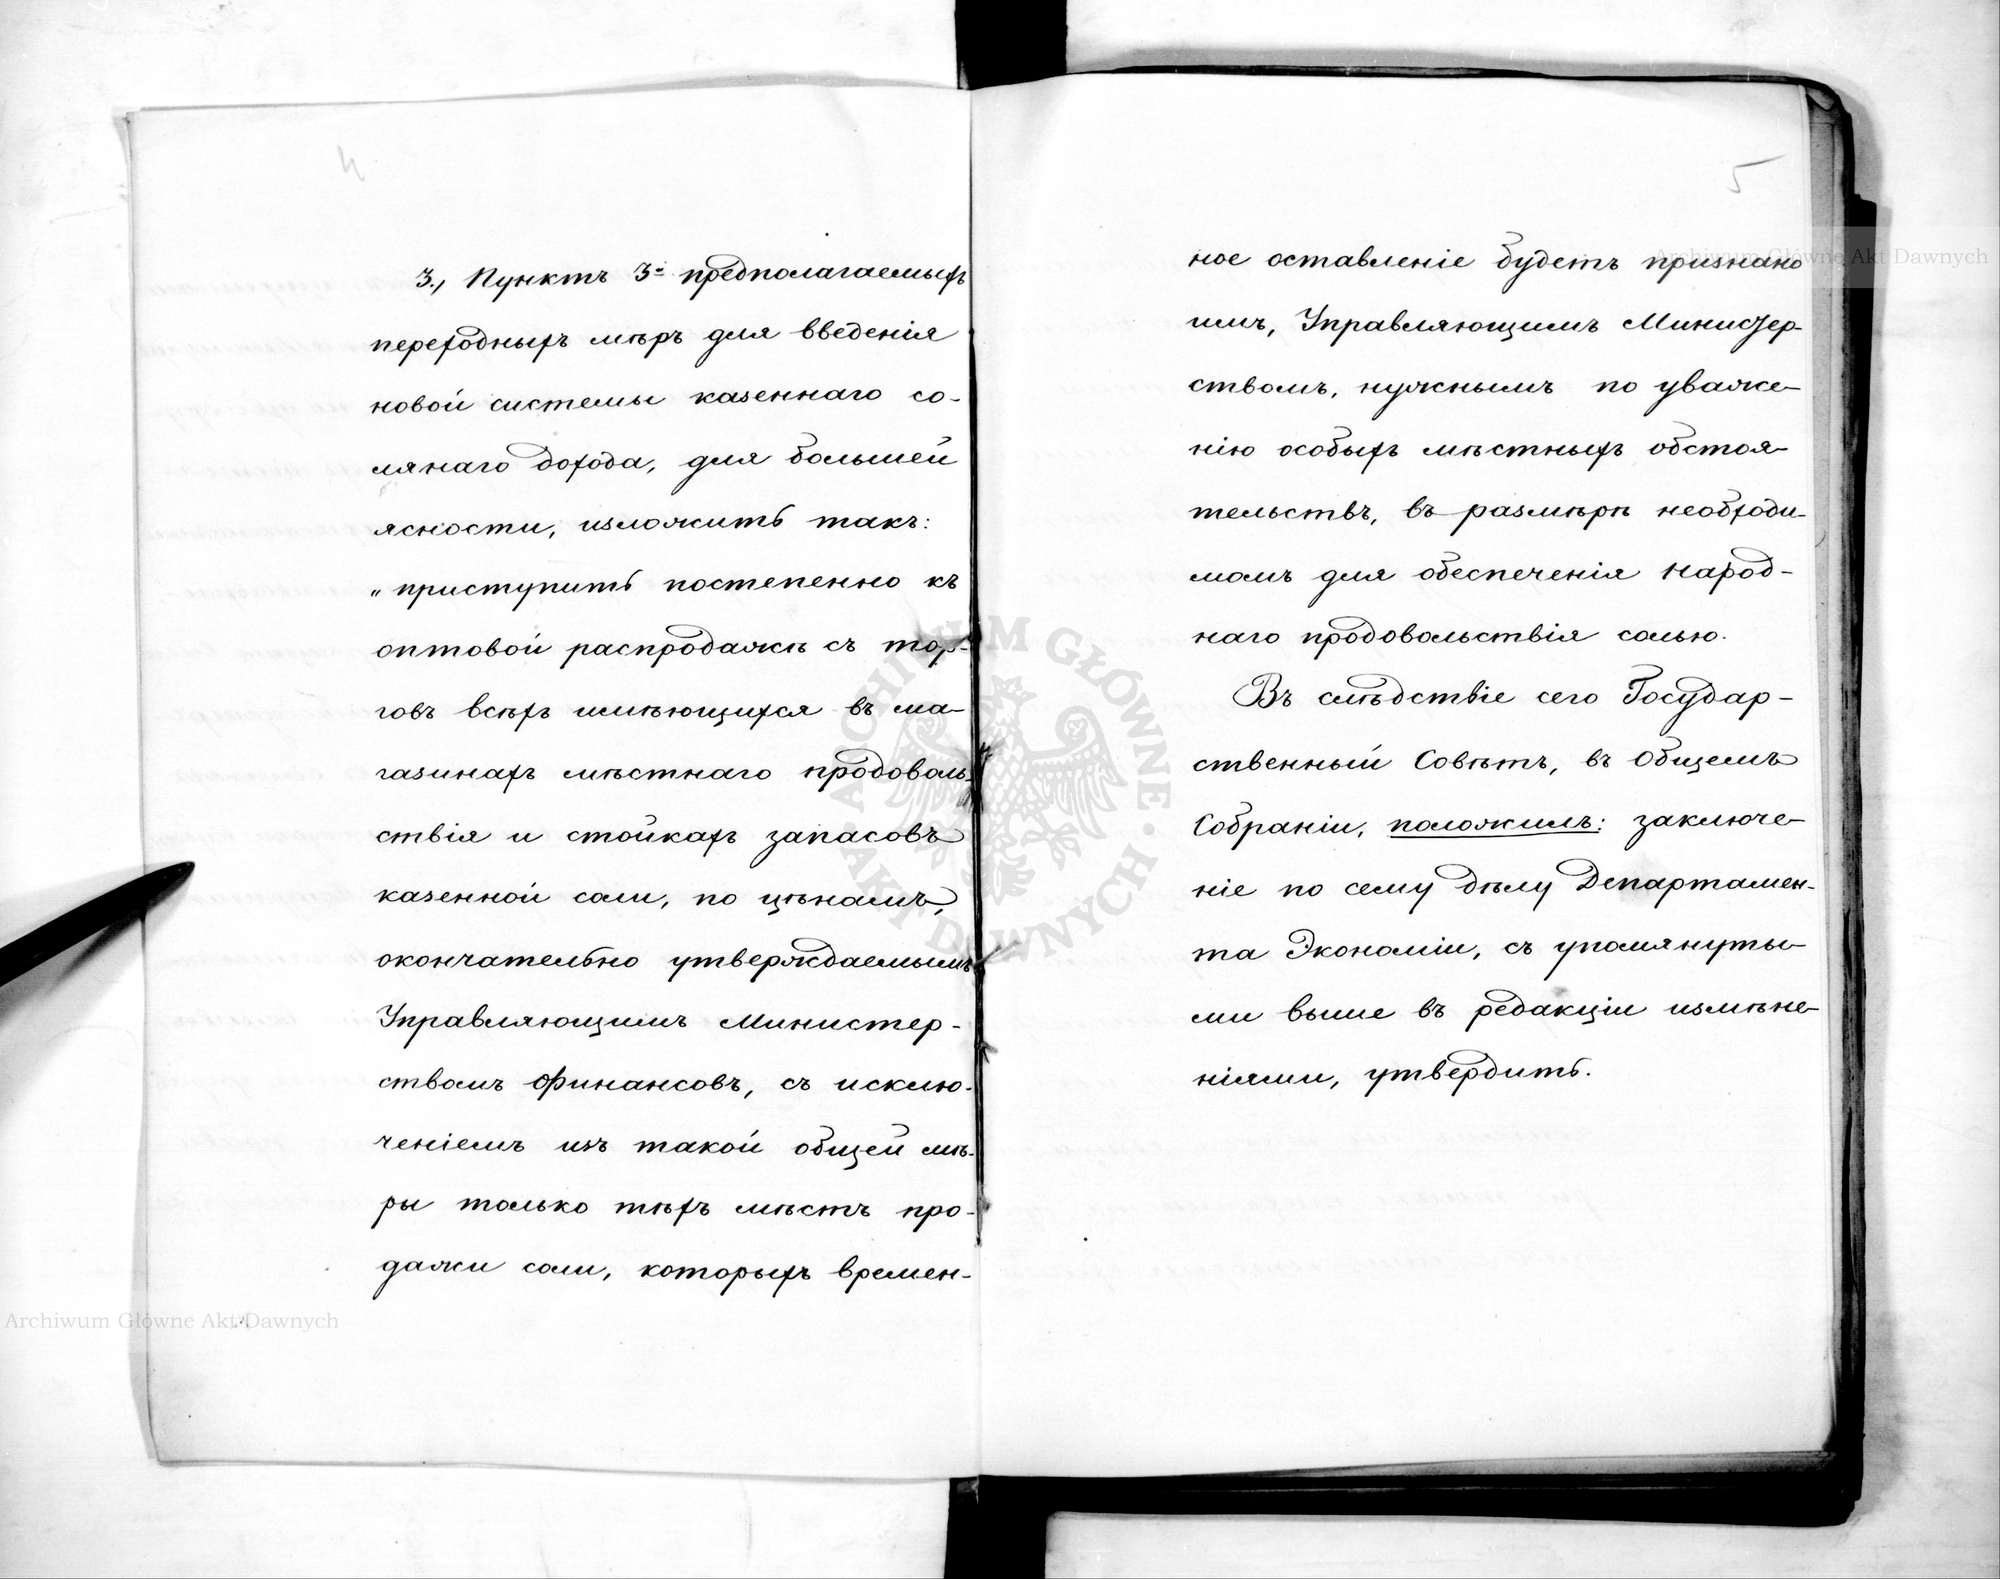 4
3., Пунктъ 3й предполагаемыхъ
переходныхъ мѣръ для введенія
новой системы казеннаго со-
лянаго дохода, для большей
ясности, изложить такъ:
„приступить постепенно къ
оптовой распродажѣ съ тор-
говъ всѣхъ имѣющихся въ ма-
газинахъ мѣстнаго продоволь-
ствія и стойкахъ запасовъ
казенной соли, по цѣнамъ,
окончательно утверждаемымъ
Управляющимъ Министер-
ствомъ Финансовъ, съ исклю-
ченіемъ изъ такой общей мѣ-
ры только тѣхъ мѣстъ про-
дажи соли, которыхъ времен-
5
ное оставленіе будетъ признано
имъ, Управляющимъ Министер-
ствомъ, нужнымъ по уваже-
нію особыхъ мѣстныхъ обстоя-
тельствъ, въ размѣрѣ необходи-
момъ для обеспеченія народ-
наго продовольствія солью.
Въ слѣдствіе сего Государ-
ственный Совѣтъ, въ Общемъ
Собраніи, положилъ: заключе-
ніе по сему дѣлу Департамен-
та Экономіи, съ упомянуты-
ми выше въ редакціи измѣне-
ніями, утвердить.
Archiwum Główne Akt Dawnych
Archiwum Główne Akt Dawnych
ARCHIWUM GŁÓWNE · AKT DAWNYCH ·